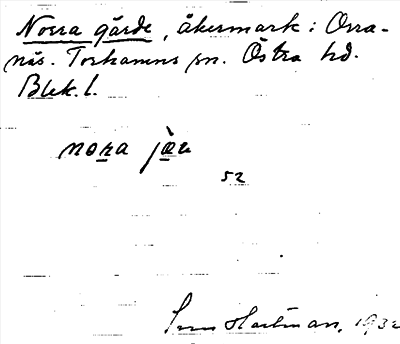 Norra gärde, åkermark i Orra-
näs. Torhamns sn. Östra hd.
Blek. l.
nora jæ
52
Hartman, 1932